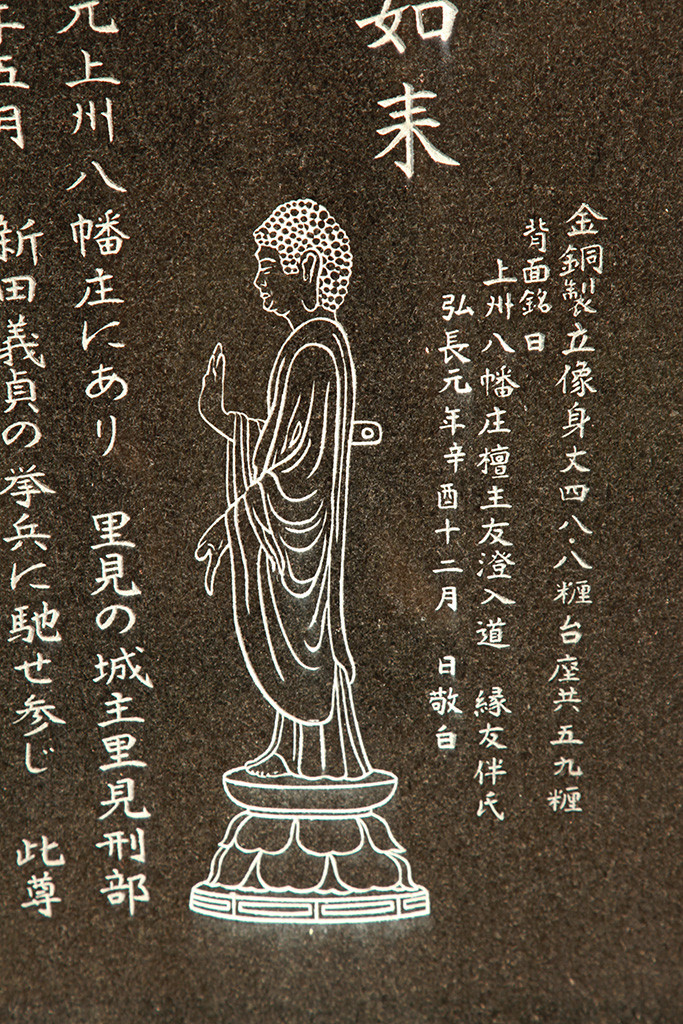 金銅製立像身丈四八・八糎台座共五九糎
背面銘曰
上州八幡庄檀主友澄入道 縁友伴氏
弘長元年辛酉十二月 日敬白
如来
元上州八幡庄にあり 里見の城主里見刑部
年五月 新田義貞の挙兵に馳せ参じ 此尊